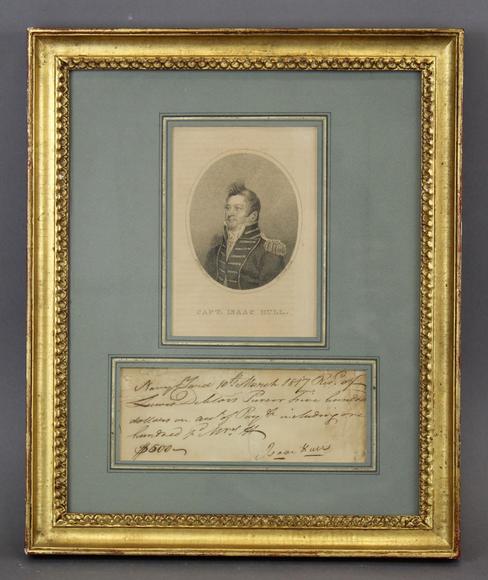 CAPT. ISAAC HULL.
Navy Yard 10th March 1817 Recd of
Lewis Deblois Purser Five hundred
dollars on acct of Pay & including one
hundred pd
$500
Isaac Hull